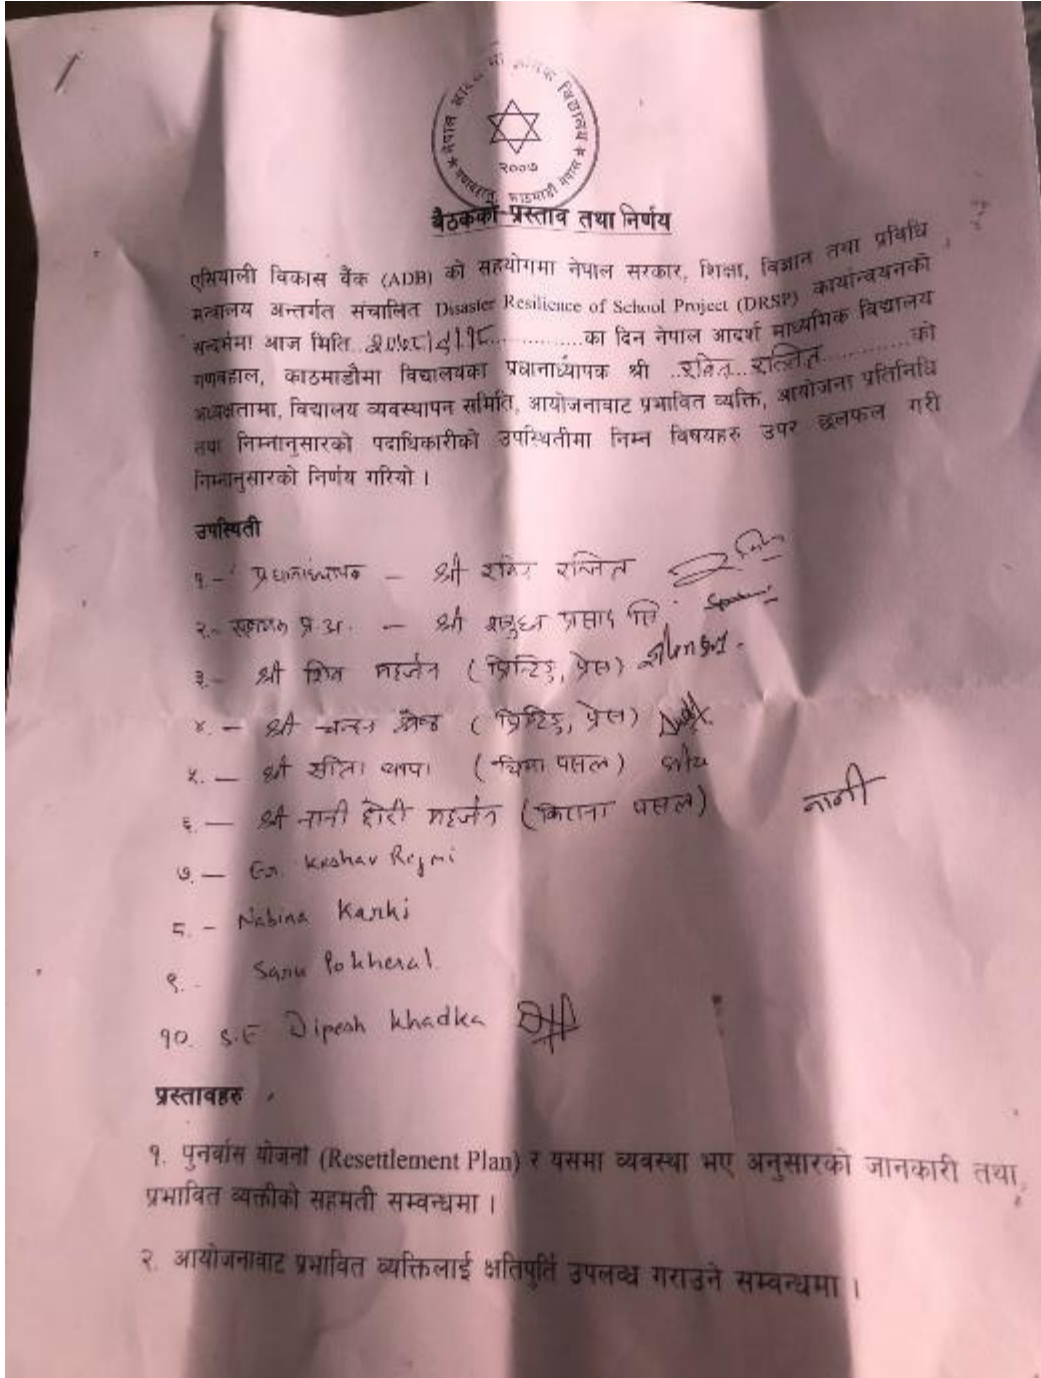 नेपाल आदर्श मा विद्यालय
२००७
गणबहाल, काठमाडौं नेपाल
बैठकको प्रस्ताव तथा निर्णय
एसियाली विकास बैंक (ADB) को सहयोगमा नेपाल सरकार, शिक्षा, विज्ञान तथा प्रविधि
मन्त्रालय अन्तर्गत संचालित Disaster Resilience of School Project (DRSP) कार्यान्वयनको
सन्दर्भमा आज मिति का दिन नेपाल आदर्श माध्यमिक विद्यालय
गणबहाल, काठमाडौमा विद्यालयका प्रधानाध्यापक श्री ..रबिन..रन्जित............को
अध्यक्षतामा, विद्यालय व्यवस्थापन समिति, आयोजनावाट प्रभावित व्यक्ति, आयोजना प्रतिनिधि
तथा निम्नानुसारको पदाधिकारीको उपस्थितीमा निम्न विषयहरु उपर छलफल गरी
निम्नानुसारको निर्णय गरियो ।
उपस्थिती
१.- प्रधानाध्यापक - श्री रन्जित
२.- सहायक प्र.अ. - श्री शत्रुधन प्रसाद
३.- श्री शिव महर्जन (प्रिन्टिङ्ग प्रेस)
४. - श्री चन्दन श्रेष्ठ (प्रिन्टिङ्ग प्रेस)
५. - श्री सीता थापा (चिया पसल)
६. - श्री नानी छोरी महर्जन (किराना पसल) नानी
७. - Er. Keshav Regmi
८. - Nabina Karki
९. - Sanu Pokheral
१०. S.E Dipesh Khadka
प्रस्तावहरु
१. पुनर्वास योजना (Resettlement Plan) र यसमा व्यवस्था भए अनुसारको जानकारी तथा
प्रभावित व्यक्तीको सहमती सम्वन्धमा ।
२. आयोजनावाट प्रभावित व्यक्तिलाई क्षतिपुर्ति उपलब्ध गराउने सम्वन्धमा ।